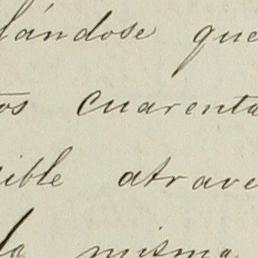 lándose que
tos cuarenta
sible atrave
la misma